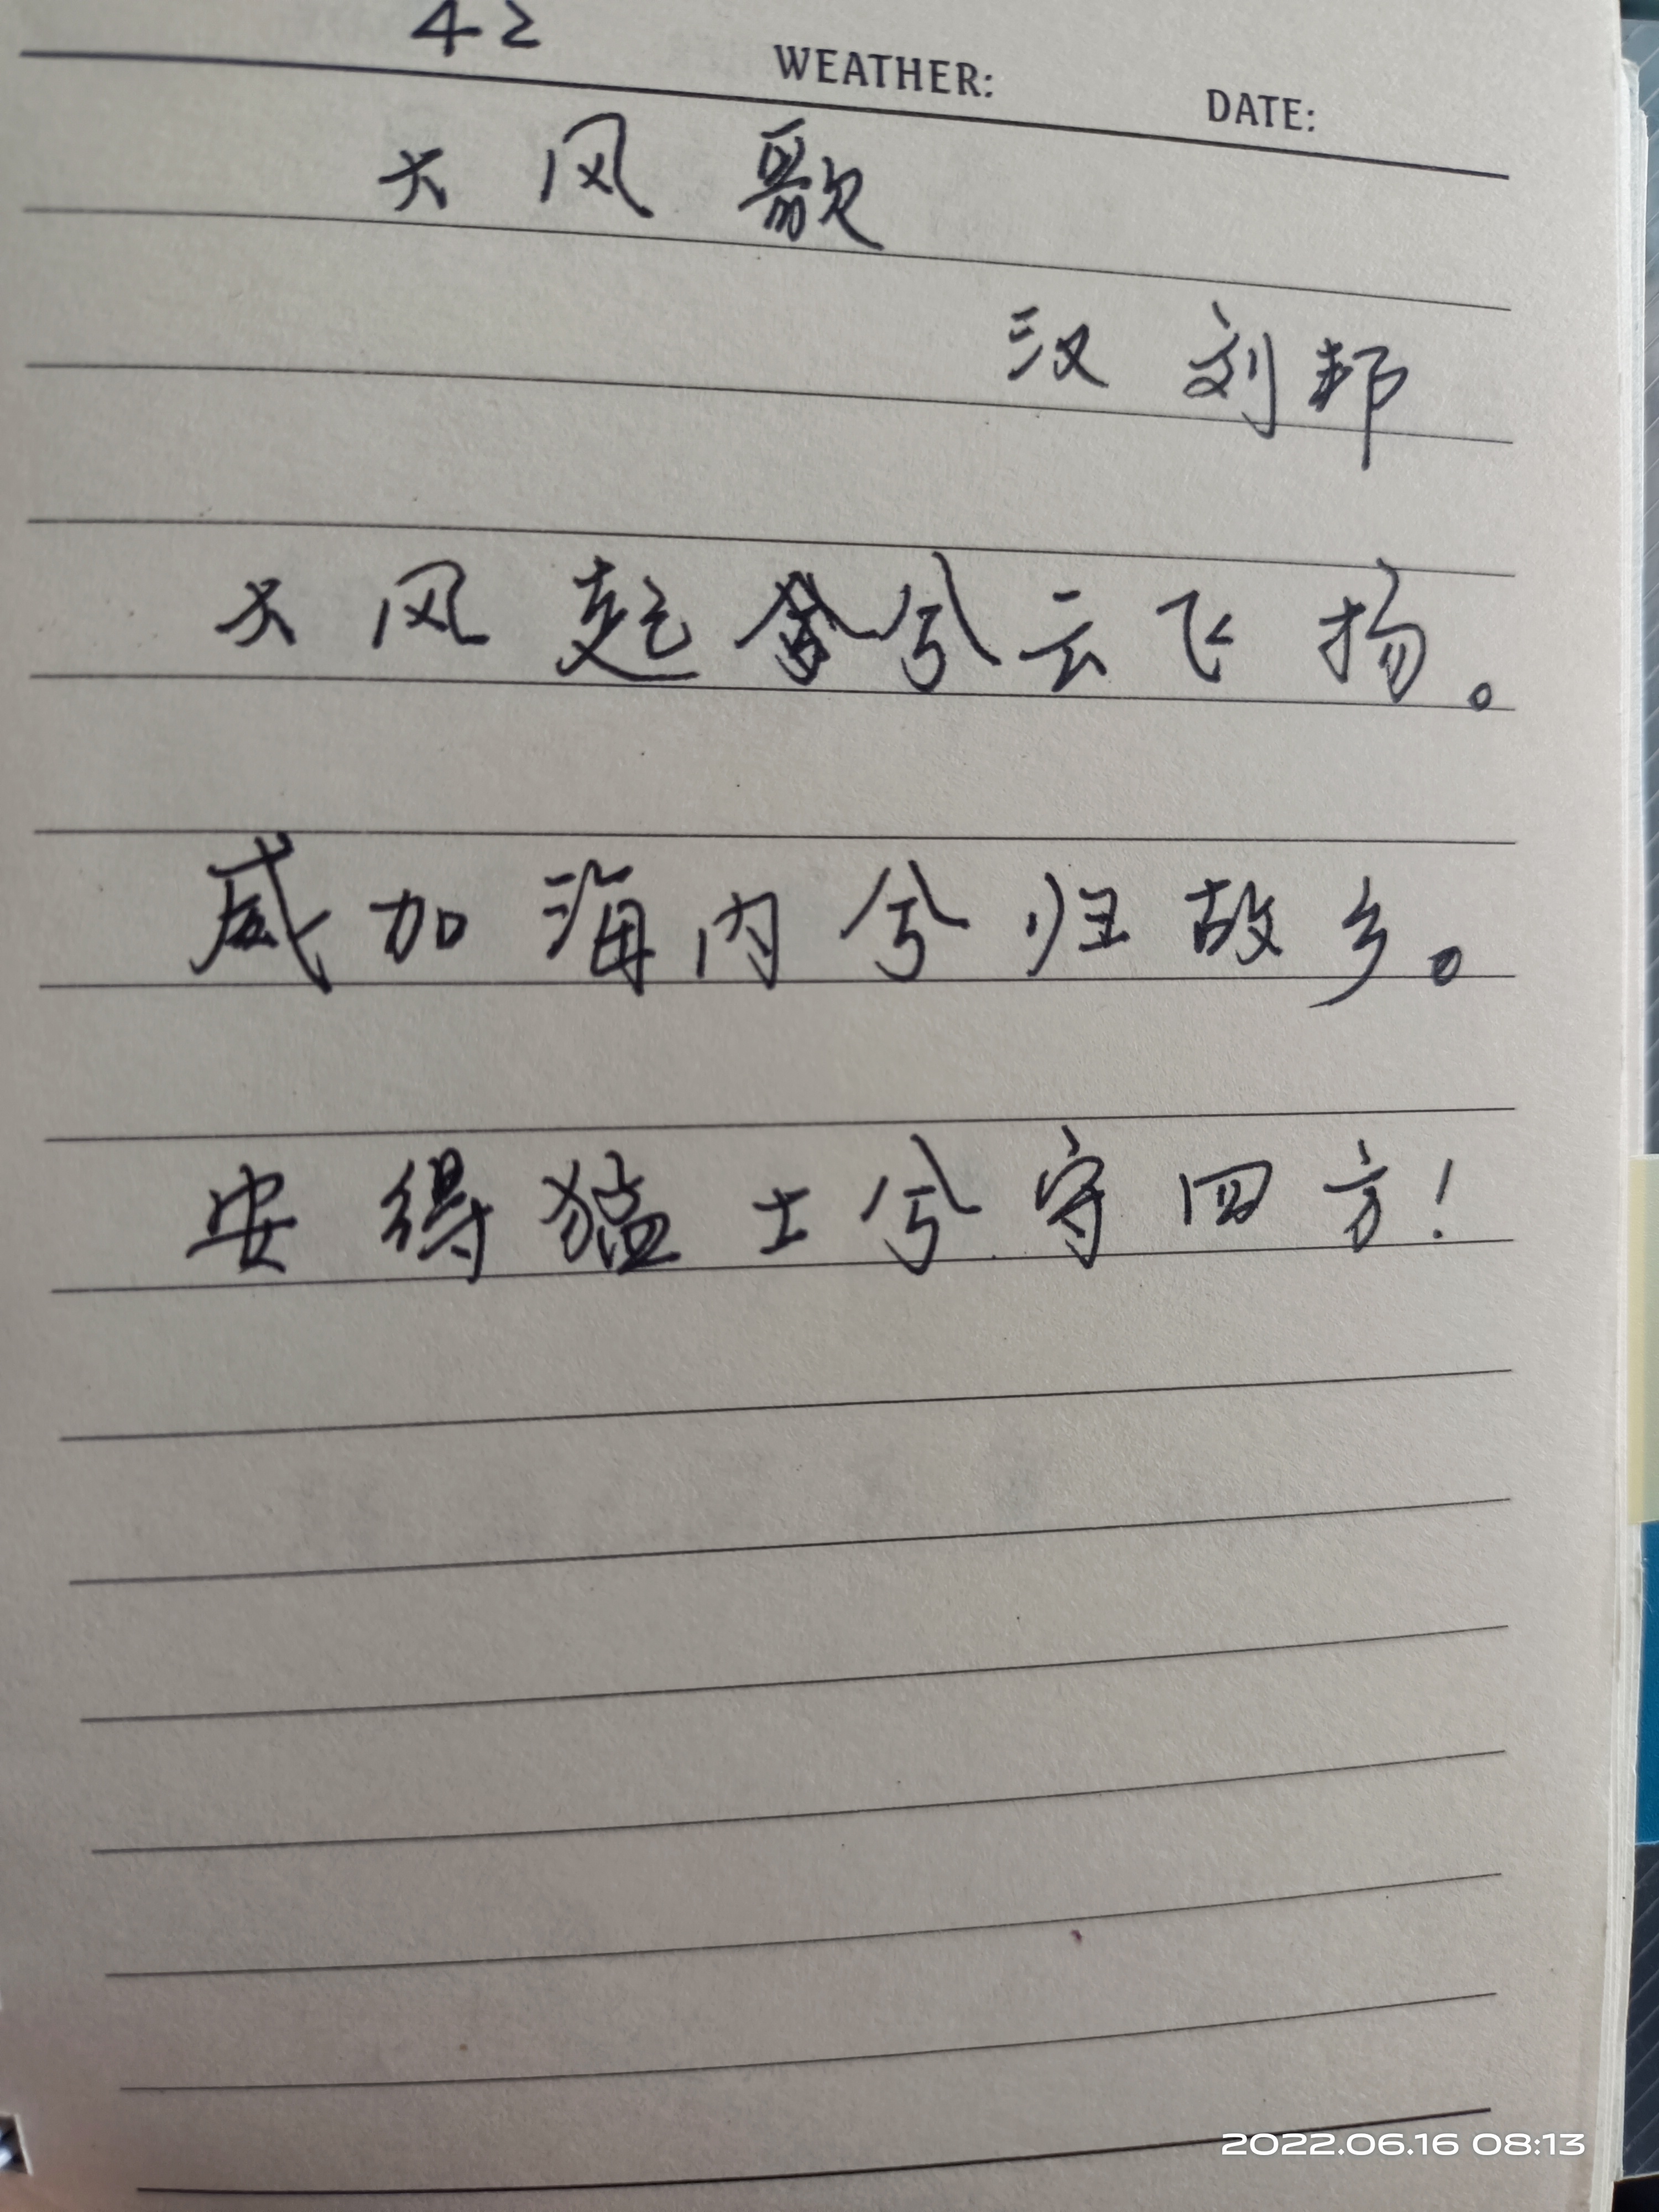 42
WEATHER: DATE:
大风歌
汉 刘邦
大风起兮云飞扬。
威加海内兮归故乡。
安得猛士兮守四方!
2022.06.16 08:13